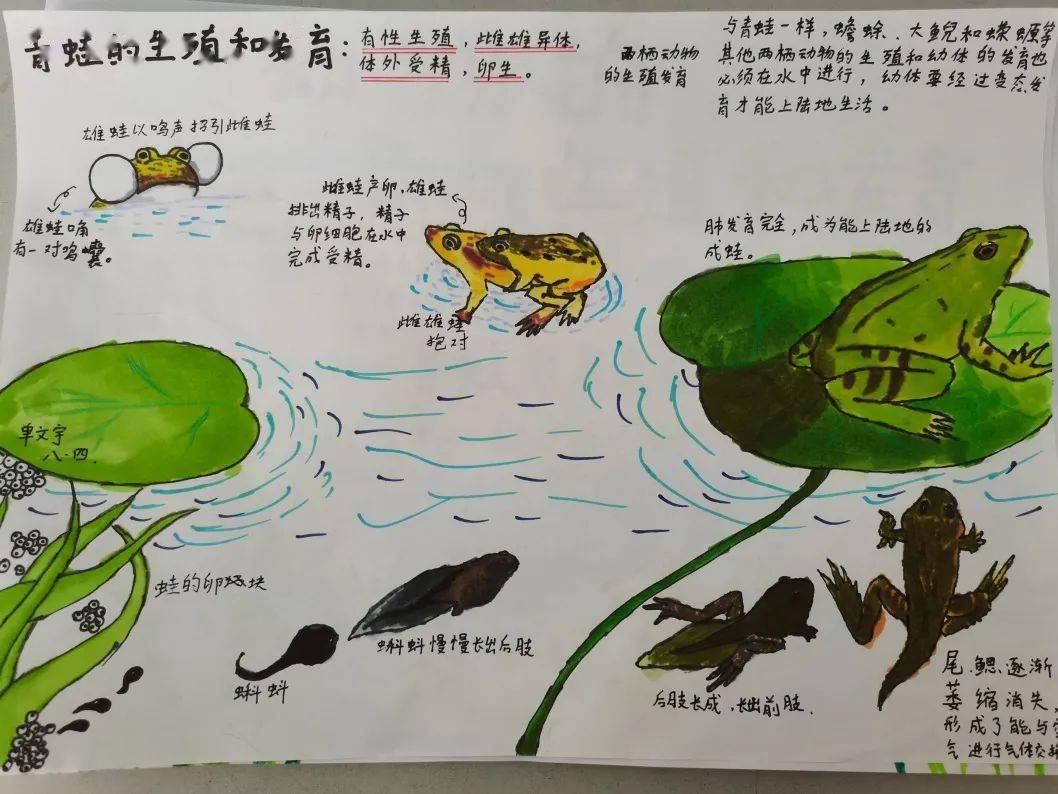 青蛙的生殖和发育：
有性生殖，雌雄异体，
体外受精，卵生。
两栖动物
的生殖发育
与青蛙一样，蟾蜍、大鲵和蝾螈等
其他两栖动物的生殖和幼体的发育也
必须在水中进行，幼体要经过变态发
育才能上陆地生活。
雄蛙以鸣声招引雌蛙
雄蛙嘴
有一对鸣囊。
雌蛙产卵，雄蛙
排出精子，精子
与卵细胞在水中
完成受精。
雌雄蛙
抱对
肺发育完全，成为能上陆地的
成蛙。
单文宇
八·四
蛙的卵块
蝌蚪
蝌蚪慢慢长出后肢
后肢长成，长出前肢．
尾、鳃逐渐
萎缩消失，
形成了能与空
气进行气体交换